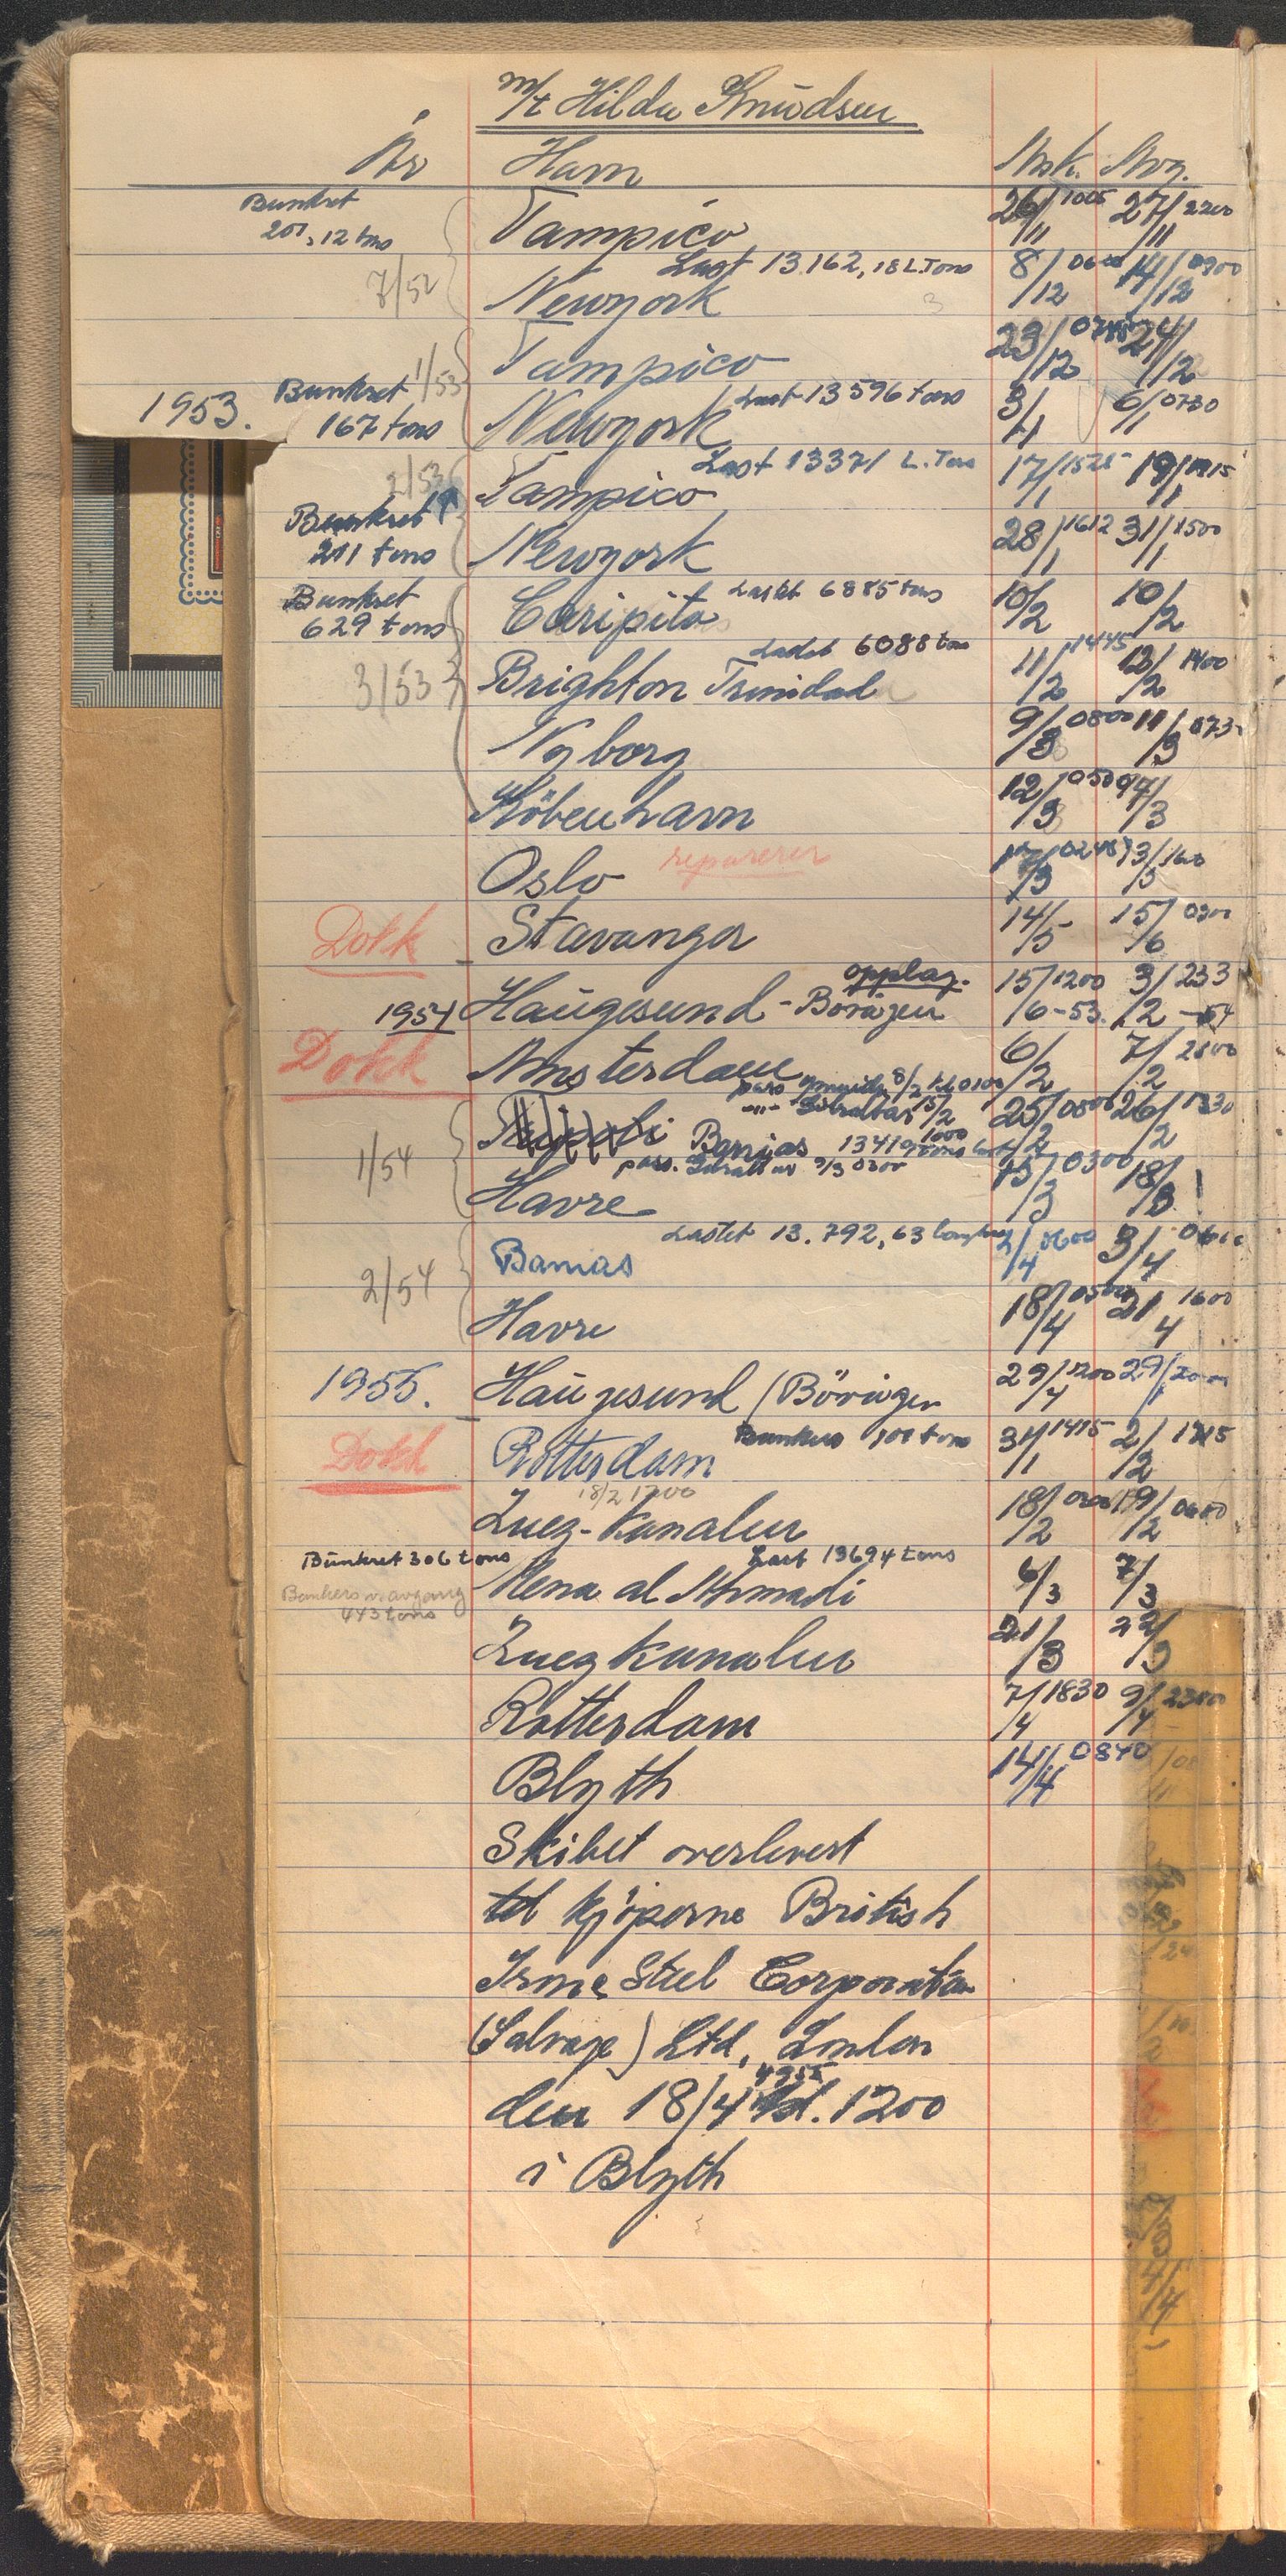 m/t Hilda Knudsen
År Havn Ank. Avg.
Bunkret
201,12 tons
Tampico 26/11 1005 27/11 2200
7/52
Last 13.162,18 L.Tons
Newyork 8/12 14/12 0900
1/53
Tampico 23/12 24/12
Last 13596 tons
1953. Bunkret
167 tons
Newyork 3/1 6/1 0730
Last 13371 L.Tons
2/53
Tampico 17/1 1525 19/1
Bunkret
211 tons
Newyork 28/1 1612 31/1 1500
Bunkret
629 tons
Lastet 6885 tons
Caripito 10/2 10/2
Ladet 6088 tons
3/53
Brighton Trinidad 11/2 1445 12/2 1400
Nyborg 9/3 0800 11/3
Köbenhavn 12/3
Oslo reparerer 13/5
Dokk
Stavanger 14/5 15/6
opplag.
1954 Haugesund - Borøyen 15/6-53 1200 3/2-54
Dokk
Amsterdam 6/2 7/2
pass Ymuiden 8/2 kl 0100
-"- Gibraltar 15/2
1/54
Banias 13419 tons 25/2 26/2
pass. Gibraltar 9/3 0300
Havre 15/3 0300 18/3
Lastet 13.792,63 longtons
2/54
Banias 2/4 0600 3/4
Havre 18/4 21/4 1600
1955. Haugesund (Böröyen 29/1
Bunkers 100 tons
Dokk
Rotterdam 31/1 1415 2/2
18/2 1700
Zuez-Kanalen 18/2 19/2 0600
Bunkret 306 tons
Last 13694 tons
Bunkers v. avgang
443 tons
Mena al Ahmadi 6/3 7/3
Zuez kanalen 21/3 22/3
Rotterdam 7/4 1830 9/4
Blyth 14/4 0840
Skibet overlevert
til kjöperne British
Irone Steel Corporation
(Salvage) Ltd, London
den 18/4 1955 kl. 1200
i Blyth